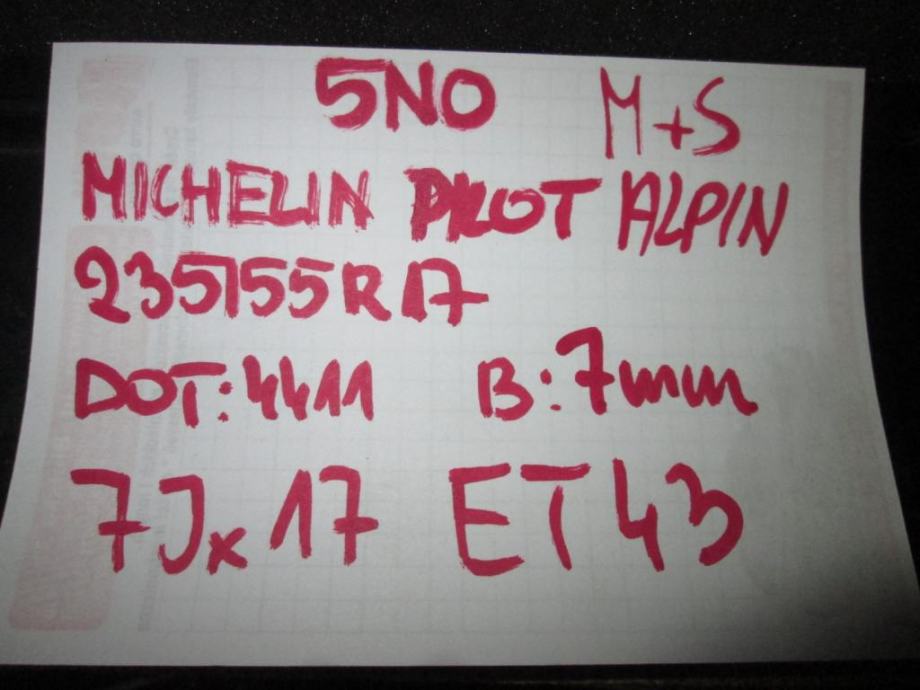 5NO M+S
MICHELIN PILOT ALPIN
235/55R17
DOT:4411 B:7mm
7Jx17 ET43